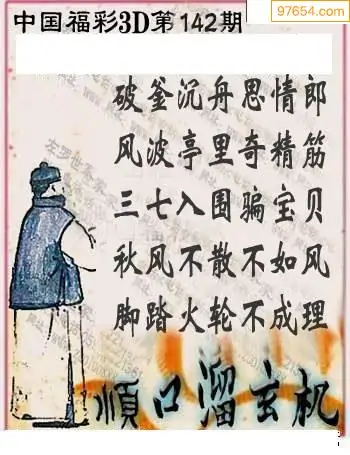 97654.com
中国福彩3D第142期
破釜沉舟思情郎
风波亭里奇精筋
三七入围骗宝贝
秋风不散不如风
脚踏火轮不成理
顺口溜玄机